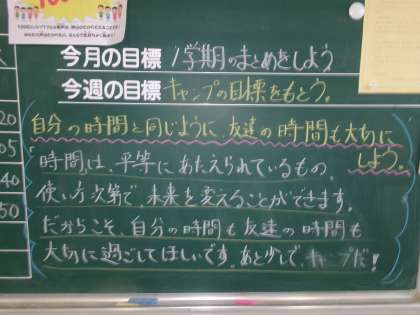 今月の目標 1学期のまとめをしよう
今週の目標 キャンプの目標をもとう。
自分の時間と同じように、友達の時間も大切に
しよう。
時間は、平等にあたえられているもの。
使い方次第で、未来を変えることができます。
だからこそ、自分の時間も友達の時間も
大切に過ごしてほしいです。あと少しで、キャンプだ!
20
05
40
50